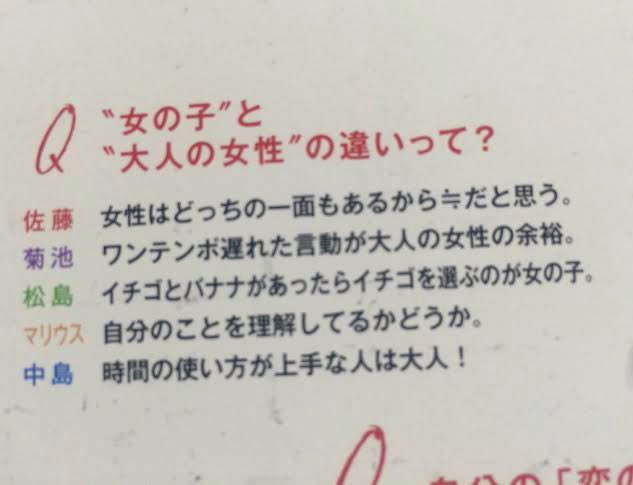 Q “女の子”と
“大人の女性”の違いって？
佐藤 女性はどっちの一面もあるから≒だと思う。
菊池 ワンテンポ遅れた言動が大人の女性の余裕。
松島 イチゴとバナナがあったらイチゴを選ぶのが女の子。
マリウス 自分のことを理解してるかどうか。
中島 時間の使い方が上手な人は大人！
Q 自分の「恋の